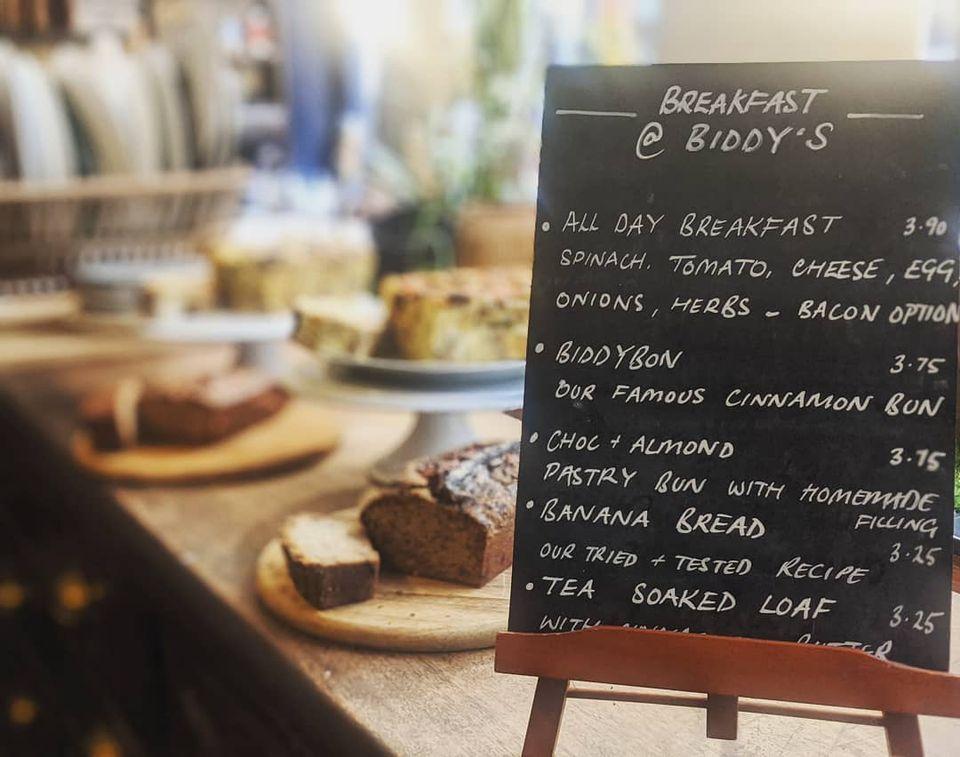 BREAKFAST
@ BIDDY'S
• ALL DAY BREAKFAST 3.90
SPINACH. TOMATO, CHEESE, EGG,
ONIONS, HERBS - BACON OPTION
• BIDDYBON 3.75
OUR FAMOUS CINNAMON BUN
• CHOC + ALMOND 3.75
PASTRY BUN WITH HOMEMADE
FILLING
• BANANA BREAD
3.25
OUR TRIED + TESTED RECIPE
• TEA SOAKED LOAF 3.25
WITH BUTTER